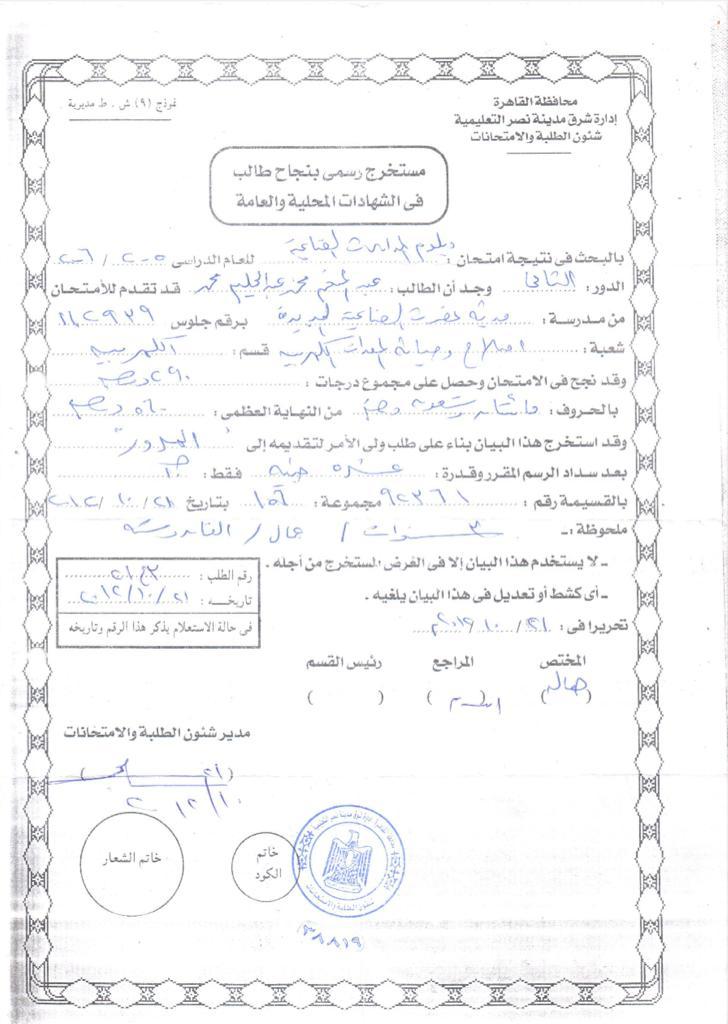 محافظة القاهرة
إدارة شرق مدينة نصر التعليمية
شئون الطلبة والامتحانات
نموذج (٩) ش . ط مديرية
مستخرج رسمى بنجاح طالب
فى الشهادات المحلية والعامة
بالبحث فى نتيجة امتحان : دبلوم المدارس الصناعية للعام الدراسى ٢٠٠٥ / ٢٠٠٦
الدور : الثانى وجد أن الطالب : عبد المنعم محمد عبد الحليم محمد قد تقدم للأمتحان
من مدرسة : الصناعية الجديدة برقم جلوس
شعبة : اصلاح وصيانة المعدات الكهربية قسم : الكهربية
وقد نجح فى الامتحان وحصل على مجموع درجات : ٢٩٠ درجة
بالحروف : مائتان وتسعون درجة من النهاية العظمى : ٥٦٠ درجة
وقد استخرج هذا البيان بناء على طلب ولى الأمر لتقديمه إلى
بعد سداد الرسم المقرر وقدرة : عشرة جنيه فقط :
بالقسيمة رقم : ٩٢٣٦١ مجموعة : ١٥٦ بتاريخ
ملحوظة :ـ ٣ سنوات /
ـ لا يستخدم هذا البيان إلا فى الغرض المستخرج من أجله .
ـ أى كشط أو تعديل فى هذا البيان يلغيه .
تحريرا فى :
رقم الطلب :
تاريخـــه : ٢٠١٢/١٠/٢١
فى حالة الاستعلام يذكر هذا الرقم وتاريخه
المختص المراجع رئيس القسم
(هاله) ( ) ( )
مدير شئون الطلبة والامتحانات
خاتم الشعار
خاتم الكود
شئون الطلبة والامتحانات